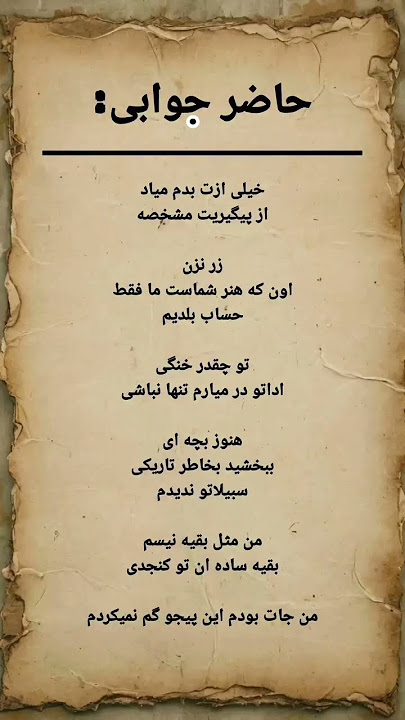 حاضر جوابی:
خیلی ازت بدم میاد
از پیگیریت مشخصه
زر نزن
اون که هنر شماست ما فقط
حساب بلدیم
تو چقدر خنگی
اداتو در میارم تنها نباشی
هنوز بچه ای
ببخشید بخاطر تاریکی
سبیلاتو ندیدم
من مثل بقیه نیسم
بقیه ساده ان تو کنجدی
من جات بودم این پیجو گم نمیکردم